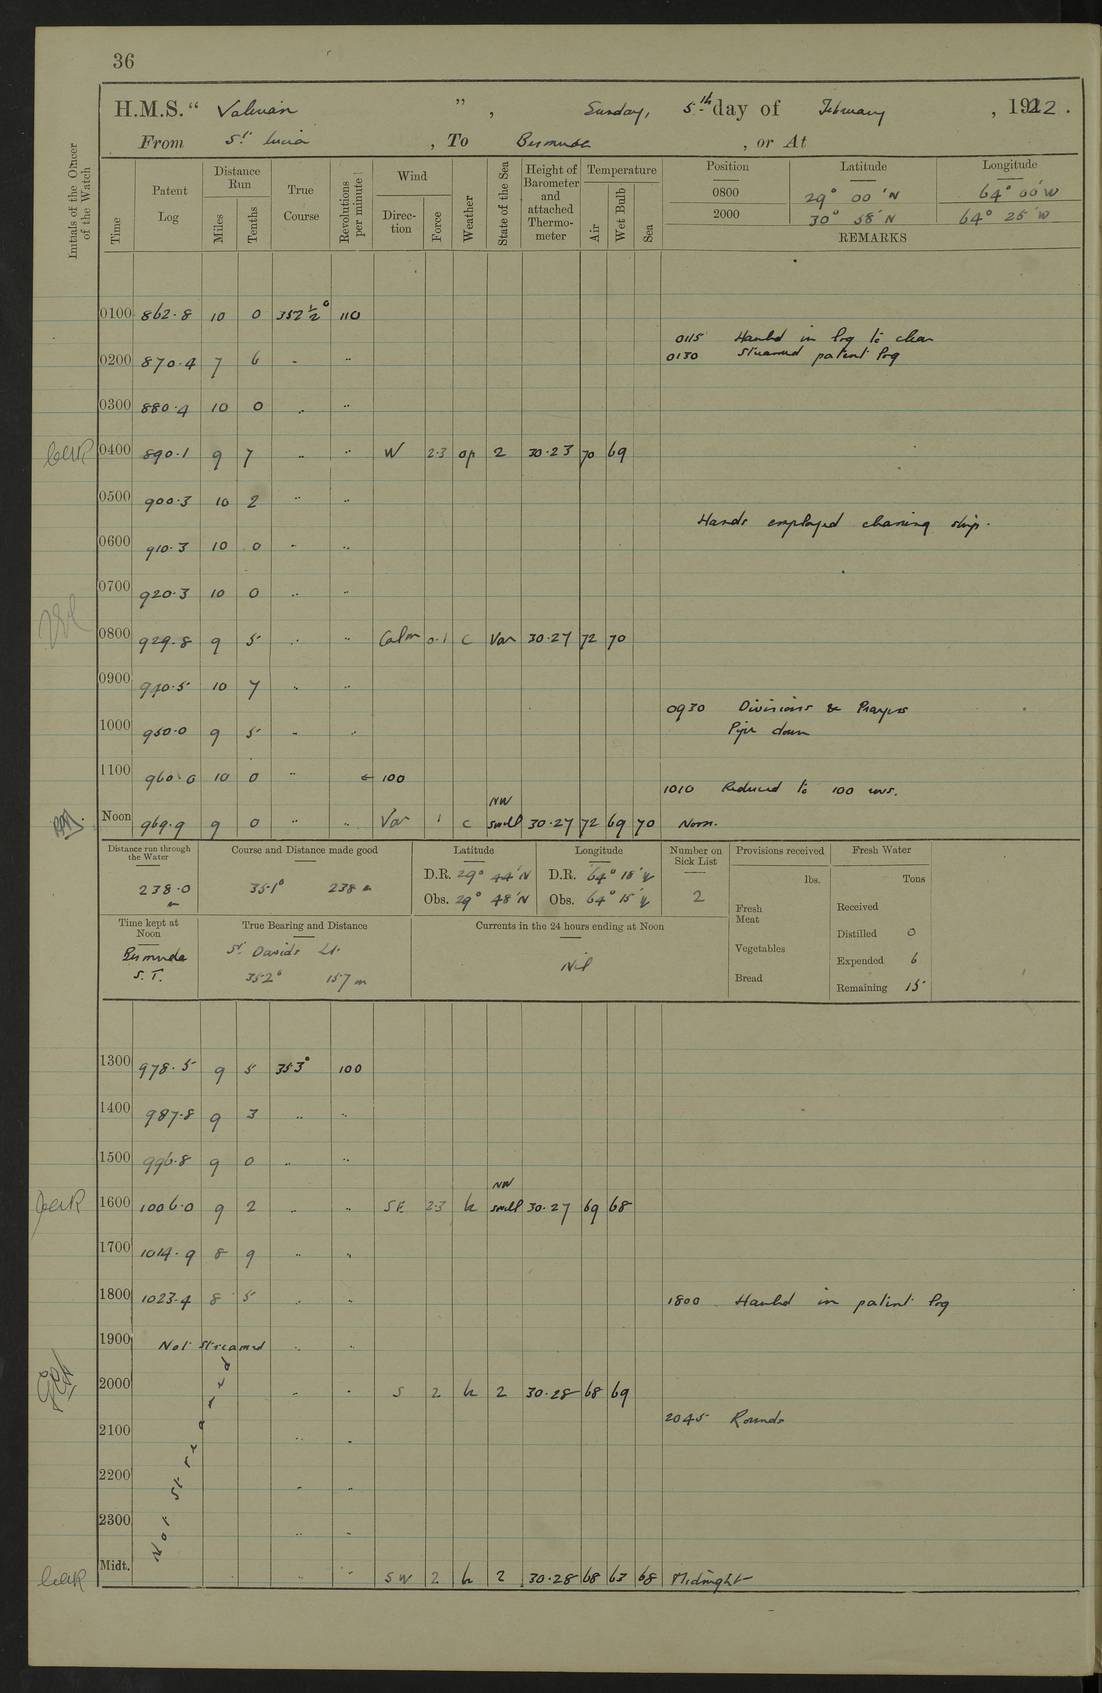 36
H.M.S. “ Valerian ” , Sunday, 5th day of February , 1922 .
From St. Lucia , To Bermuda , or At
Initials of the Officer of the Watch
Time
Patent Log
Distance Run
Miles
Tenths
True Course
Revolutions per minute
Wind
Direc- tion
Force
Weather
State of the Sea
Height of Barometer and attached Thermo- meter
Temperature
Air
Wet Bulb
Sea
Position Latitude Longitude
0800 29° 00'N 64° 00'W
2000 30° 58'N 64° 25'W
REMARKS
0100 862.8 10 0 352½° 110
0115 Hauled in log to clear
0130 Streamed patent log
0200 870.4 7 6 " "
0300 880.4 10 0 " "
0400 890.1 9 7 " " W 2.3 op 2 30.23 70 69
0500 900.3 10 2 " "
Hands employed cleaning ship.
0600 910.3 10 0 " "
0700 920.3 10 0 " "
0800 929.8 9 5 " " Calm 0.1 c Var 30.27 72 70
0900 940.5 10 7 " "
0930 Divisions & Prayers
1000 950.0 9 5 " " Pipe down
1100 960.0 10 0 " ← 100
1010 Reduced to 100 revs.
Noon 969.9 9 0 " " Var 1 c NW swell 30.27 72 69 70 Noon.
Distance run through the Water
238.0 m
Course and Distance made good
351° 238 m
Latitude
D.R. 29° 44'N
Obs. 29° 48'N
Longitude
D.R. 64° 18'W
Obs. 64° 15'W
Number on Sick List
2
Provisions received
lbs.
Fresh Meat
Vegetables
Bread
Fresh Water
Tons
Received
Distilled 0
Expended 6
Remaining 15
Time kept at Noon
Bermuda S.T.
True Bearing and Distance
St. Davids Lt.
352° 157 m
Currents in the 24 hours ending at Noon
Nil
1300 978.5 9 5 353° 100
1400 987.8 9 3 " "
1500 996.8 9 0 " "
1600 1006.0 9 2 " " SE 2.3 b NW swell 30.27 69 68
1700 1014.9 8 9 " "
1800 1023.4 8 5 " " 1800 Hauled in patent log
1900 Not Streamed " "
2000 " " S 2 b 2 30.28 68 69
2045 Rounds
2100 " "
2200 " "
2300 " "
Not Streamed
Midt. " " SW 2 b 2 30.28 68 63 68 Midnight